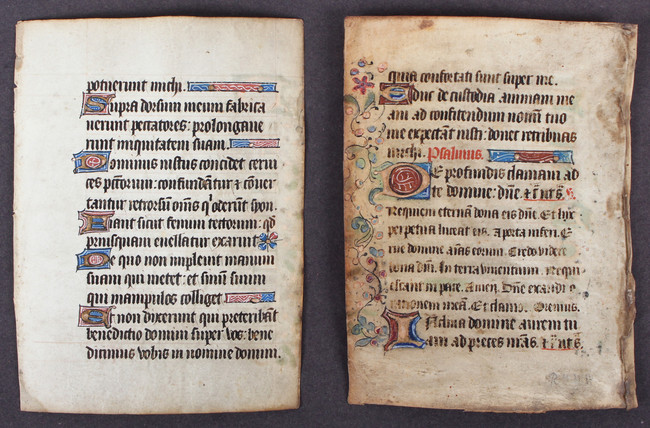 potuerunt michi.
Supra dorsum meum fabrica
uerunt peccatores: prolongaue
runt iniquitatem suam.
Dominus iustus concidet cerui
ces pctorum: confundãtur ⁊ cõuer
tantur retrorsum oms q̃ oderunt syon.
Fiant sicut fenum tectorum: qd
priusquam euellatur exaruit
De quo non impleuit manum
suam qui metet: et sinum suum
qui manipulos colliget
Et non dixerunt qui preteribant
benedictio domini super vos: bene
diximus vobis in nomine domini.
quia confortati sunt super me.
Educ de custodia animam me
am ad confitendum nomini tuo
me expectant iusti: donec retribuas
michi. Psalmus.
De profundis clamaui ad
te domine: dñe
Requiem eternã dona eis dñe. Et lux
perpetua luceat eis. A porta inferi. E
rue domine aĩas eorum. Credo videre
bona dñi. In terra viuentium. Requi
escant in pace. Amen. Dñe exaudi o
rationem meã. Et clamor. Oremus.
Inclina domine aurem tu
am ad preces nr̃as.